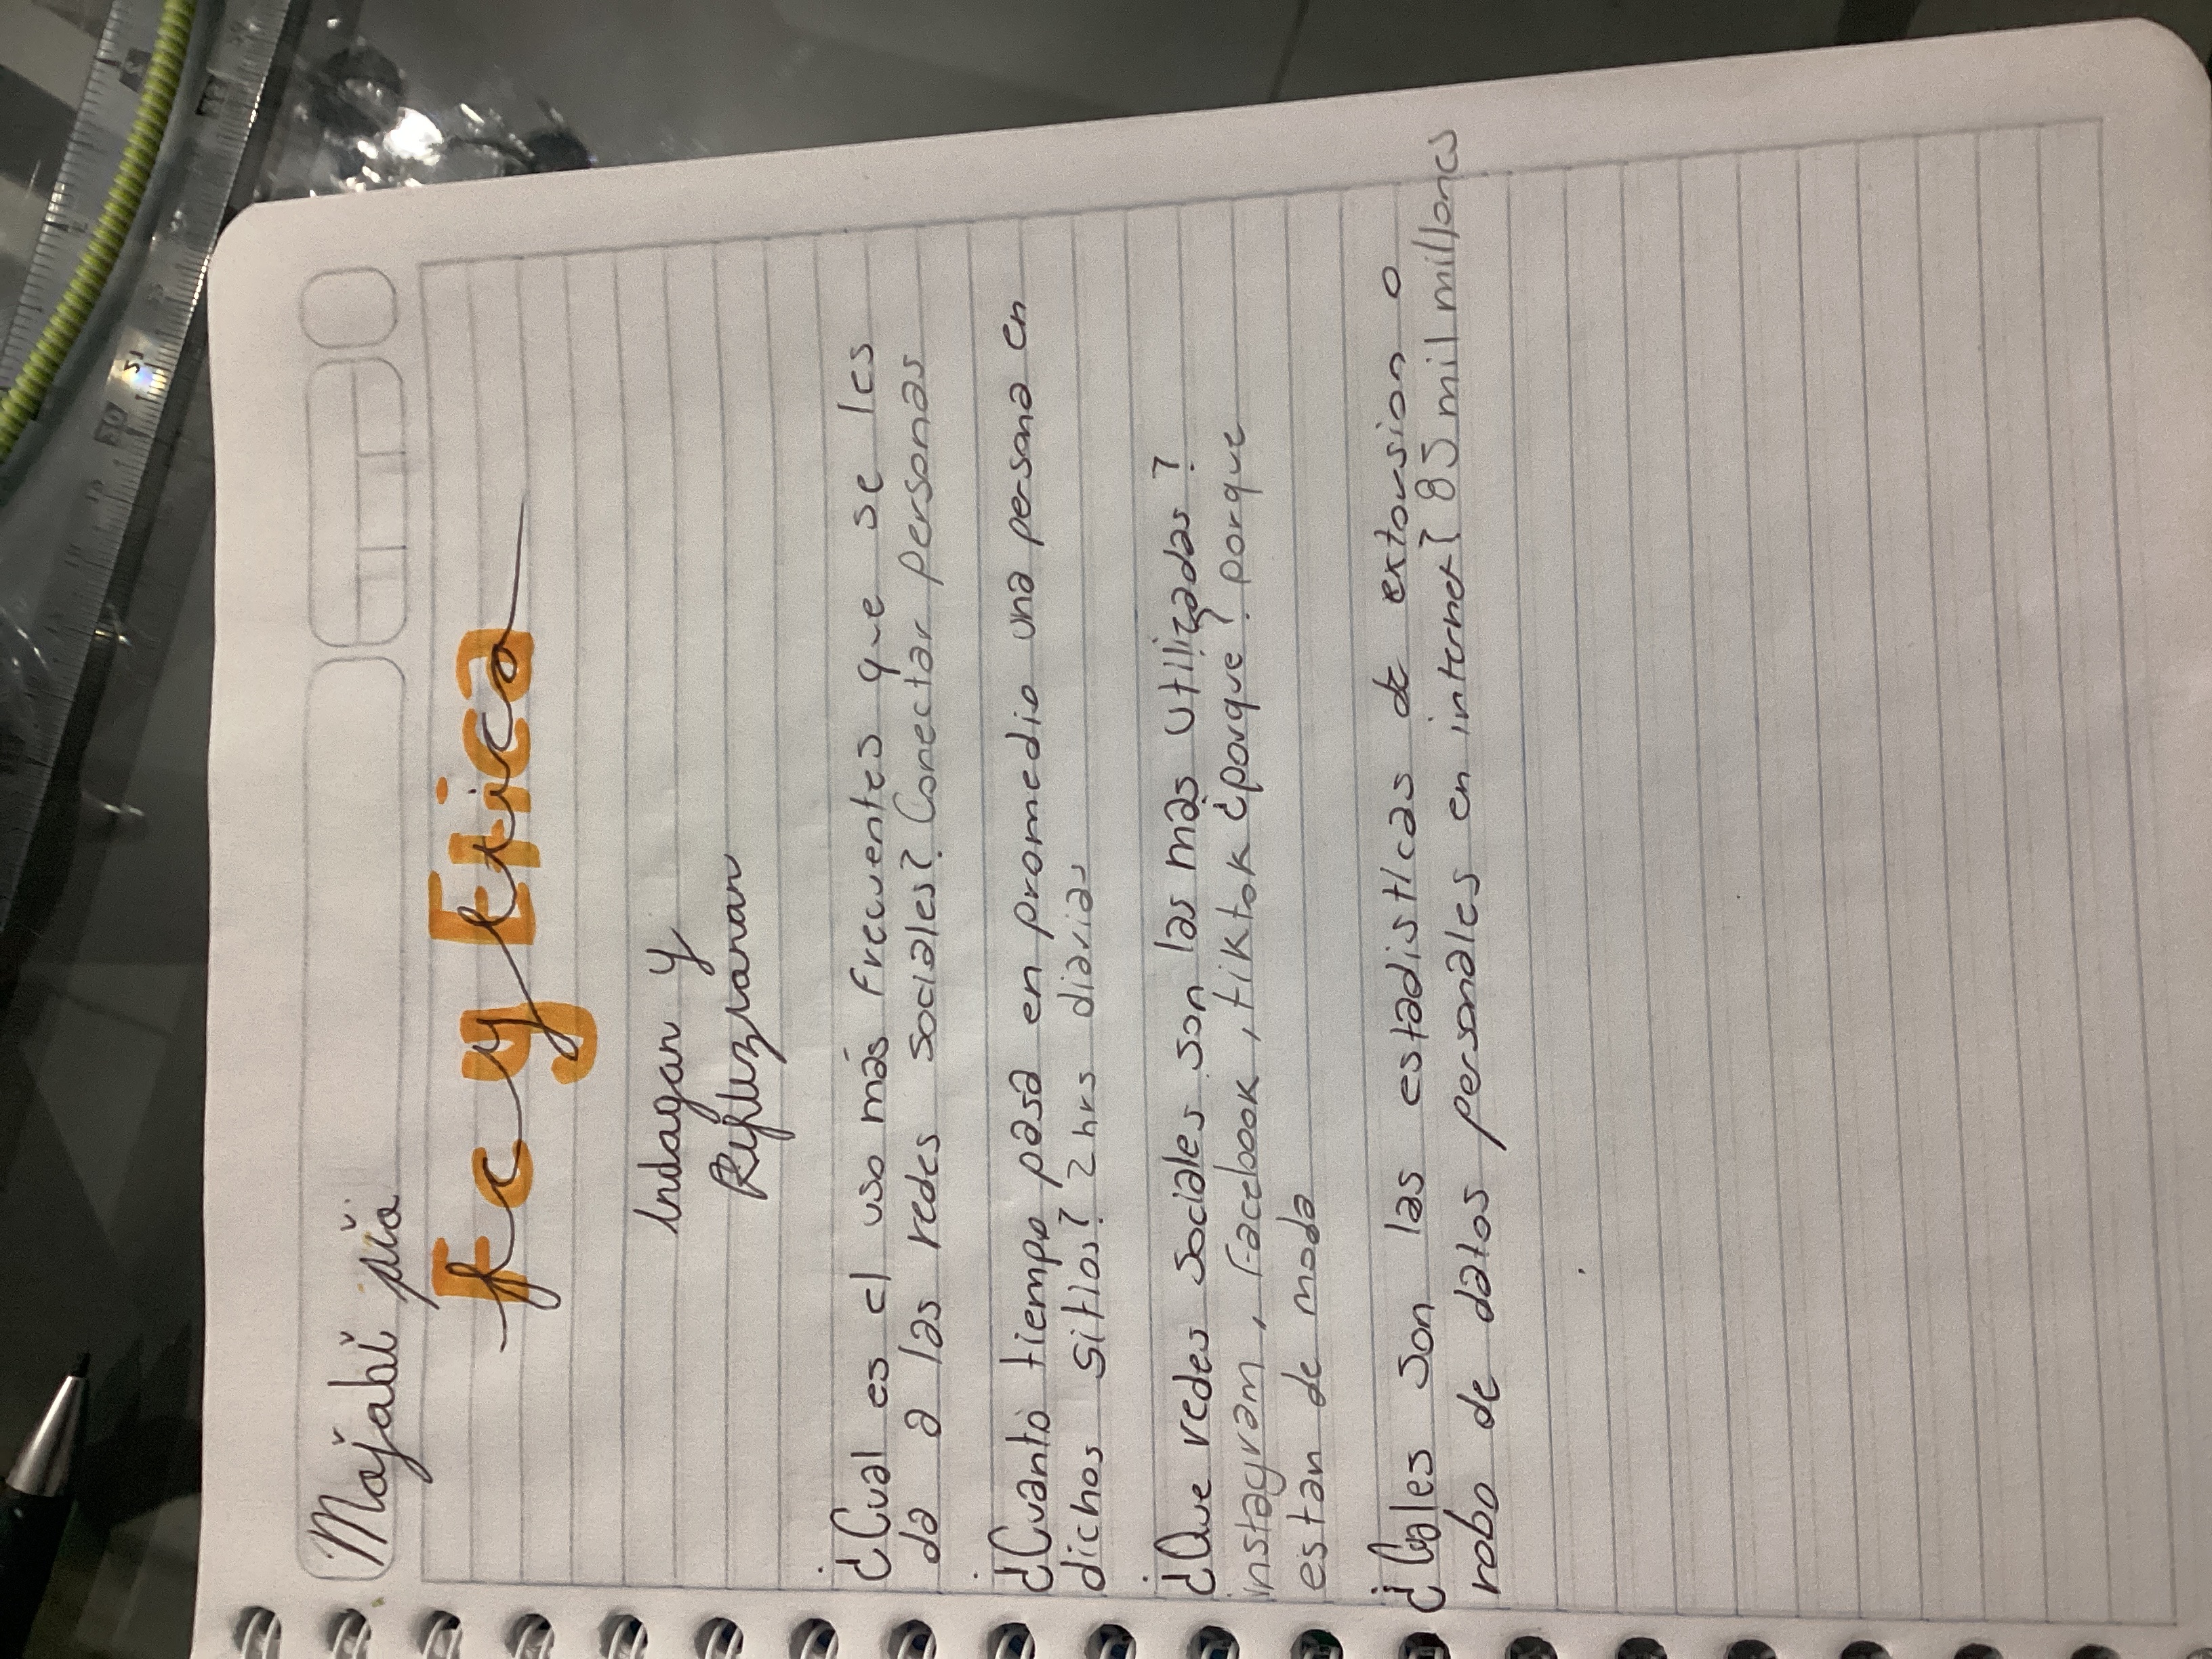 Majabi pia
Fc y Etica
Indagar y
Reflexionar
¿Cual es el uso más frecuentes que se les
da a las redes sociales? Conectar personas
¿Cuanto tiempo pasa en promedio una persona en
dichos sitios? 2 hrs diarias
¿Que redes sociales son las mas utilizadas?
instagram, Facebook, tiktok ¿porque? porque
estan de moda
¿Cuales son las estadisticas de extorsion o
robo de datos personales en internet? 85 mil millones